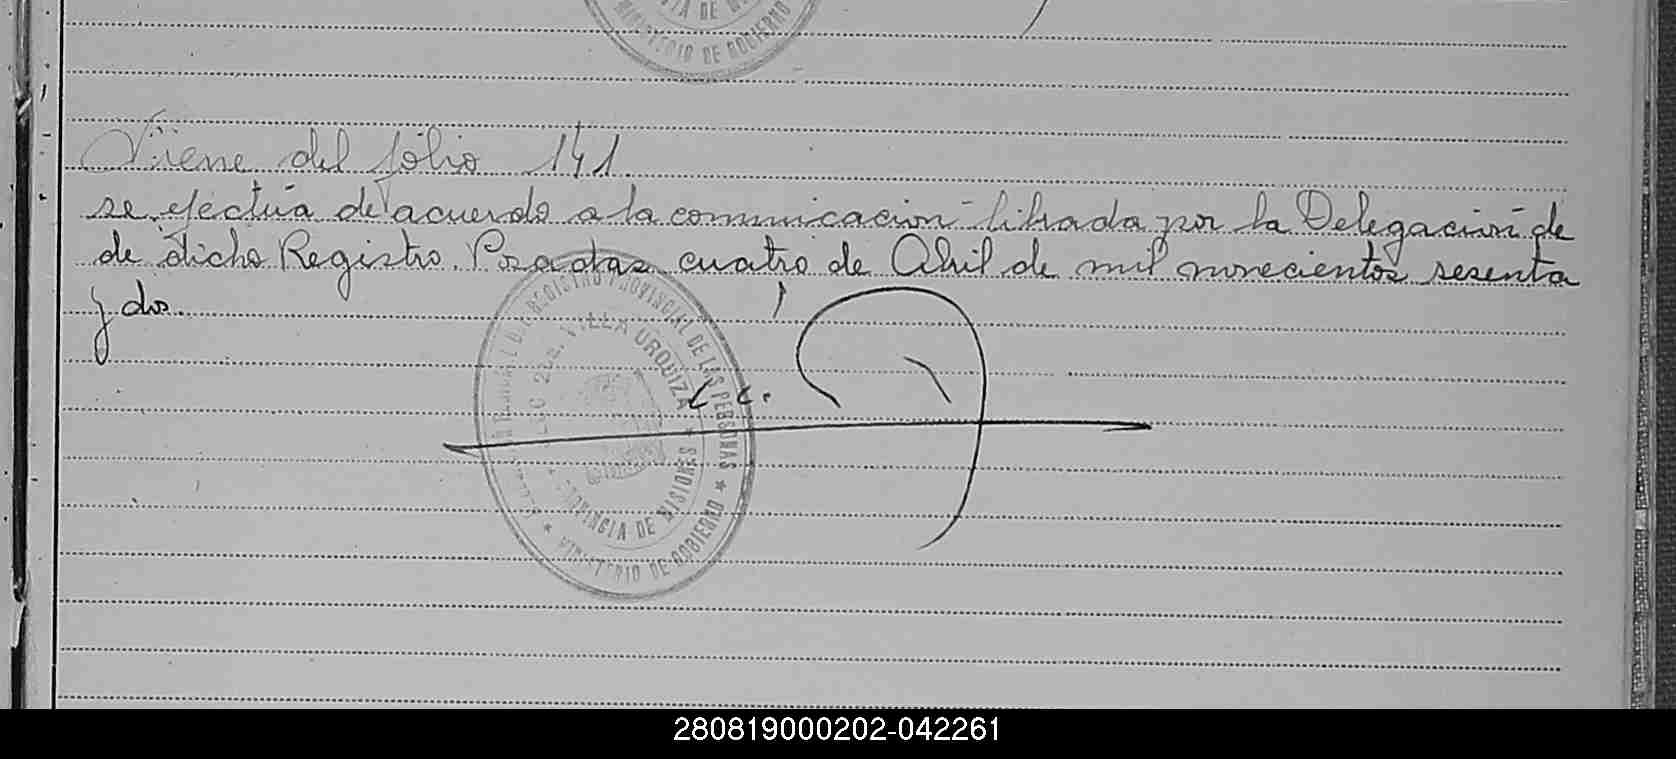 MINISTERIO DE GOBIERNO
Viene del fólio 141.
se efectúa de acuerdo a la comunicación librada por la Delegación de
de dicho Registro. Posadas, cuatro de Abril de mil novecientos sesenta
y dos.
REGISTRO PROVINCIAL DE LAS PERSONAS
VILLA URQUIZA
PROVINCIA DE MISIONES
MINISTERIO DE GOBIERNO
280819000202-042261